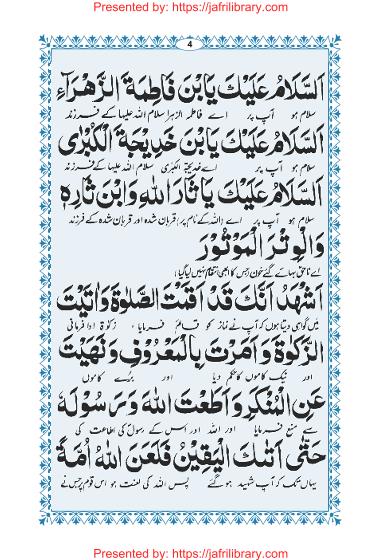 Presented by: https://jafrilibrary.com/
4
اَلسَّلَامُ عَلَيْكَ يَابْنَ فَاطِمَةَ الزَّهْرَآءِ
سلام ہو آپ پر اے فاطمہ الزہرا سلام اللہ علیہا کے فرزند
اَلسَّلَامُ عَلَيْكَ يَابْنَ خَدِيْجَةَ الْكُبْرٰى
سلام ہو آپ پر اے خدیجۃ الکبریٰ سلام اللہ علیہا کے فرزند
اَلسَّلَامُ عَلَيْكَ يَا ثَارَ اللهِ وَابْنَ ثَارِهٖ
سلام ہو آپ پر اے (اللہ کے نام پر) قربان شدہ اور قربان شدہ کے فرزند
وَالْوِتْرَ الْمَوْتُوْرَ
اے ناحق بہائے گئے خون (جس کا ابھی انتقام نہیں لیا گیا)
اَشْهَدُ اَنَّكَ قَدْ اَقَمْتَ الصَّلٰوةَ وَاٰتَيْتَ
میں گواہی دیتا ہوں کہ آپ نے نماز کو قائم فرمایا ، زکوٰۃ ادا فرمائی
الزَّكٰوةَ وَ اَمَرْتَ بِالْمَعْرُوْفِ وَ نَهَيْتَ
اور نیک کاموں کا حکم دیا اور برے کاموں
عَنِ الْمُنْكَرِ وَ اَطَعْتَ اللهَ وَ رَسُوْلَهٗ
سے منع فرمایا اور اللہ اور اس کے رسول کی اطاعت کی
حَتّٰى اَتٰىكَ الْيَقِيْنُ فَلَعَنَ اللهُ اُمَّةً
یہاں تک کہ آپ شہید ہو گئے پس اللہ کی لعنت ہو اس قوم پر جس نے
Presented by: https://jafrilibrary.com/